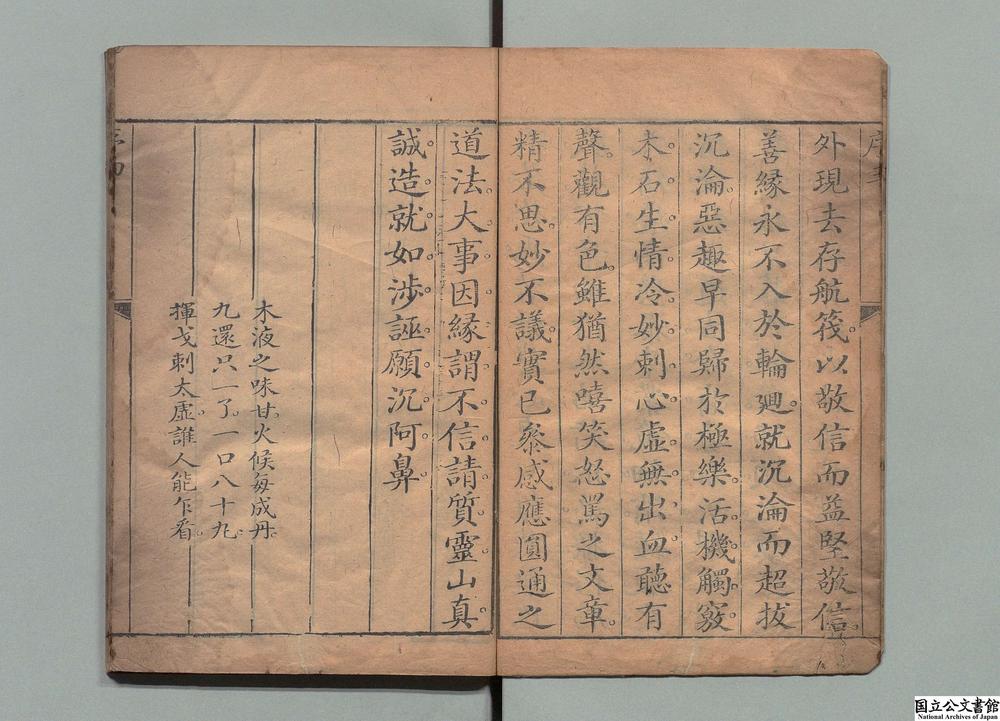 外現去存航筏。以敬信而益堅敬信。
善緣永不入於輪廻。就沉淪而超拔
沉淪。惡趣早同歸於極樂。活機觸竅。
木石生情。冷妙刺心。虛無出血。聽有
聲。觀有色。雖猶然嘻笑怒罵之文章。
精不思。妙不議。實已叅感應圓通之
道法。大事因緣。謂不信。請質靈山。真
誠造就。如涉誣。願沉阿鼻。
木液之味甘。火候每成丹。
九還只一了。一口八十九。
揮戈刺太虛。誰人能乍看。
国立公文書館
National Archives of Japan